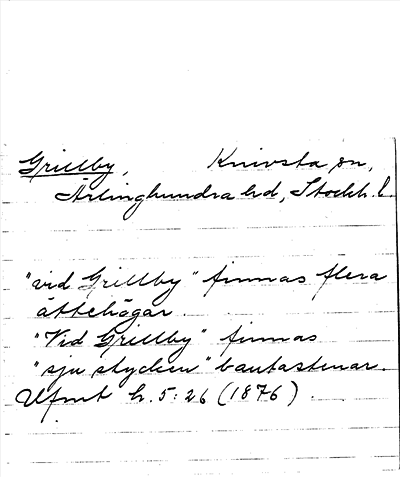 Grillby, Knivsta sn,
Ärlinghundra hd, Stockh. l.
"vid Grillby" finnas flera
ättehögar.
"Vid Grillby" finnas
"sju stycken" bautastenar.
Upmt h. 5:26 (1876).